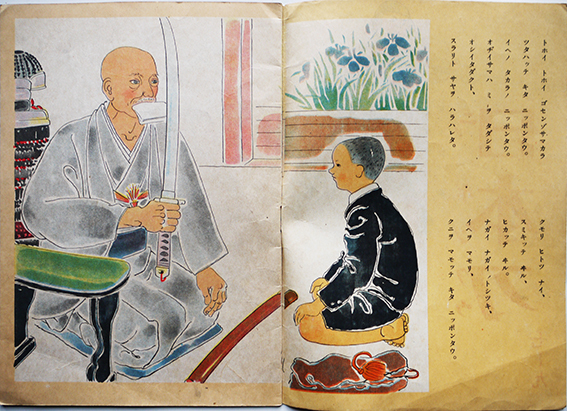 トホイ トホイ ゴセンゾサマカラ
ツタハッテ キタ ニッポンタウ。
イヘノ タカラノ ニッポンタウ。
オヂイサマハ ミヲ タダシテ
オシイタダクト、
スラリト サヤヲ ハラハレタ。
クモリ ヒトツ ナイ、
スミキッテ ヰル、
ヒカッテ ヰル。
ナガイ ナガイ トシツキ、
イヘヲ マモリ、
クニヲ マモッテ キタ ニッポンタウ。